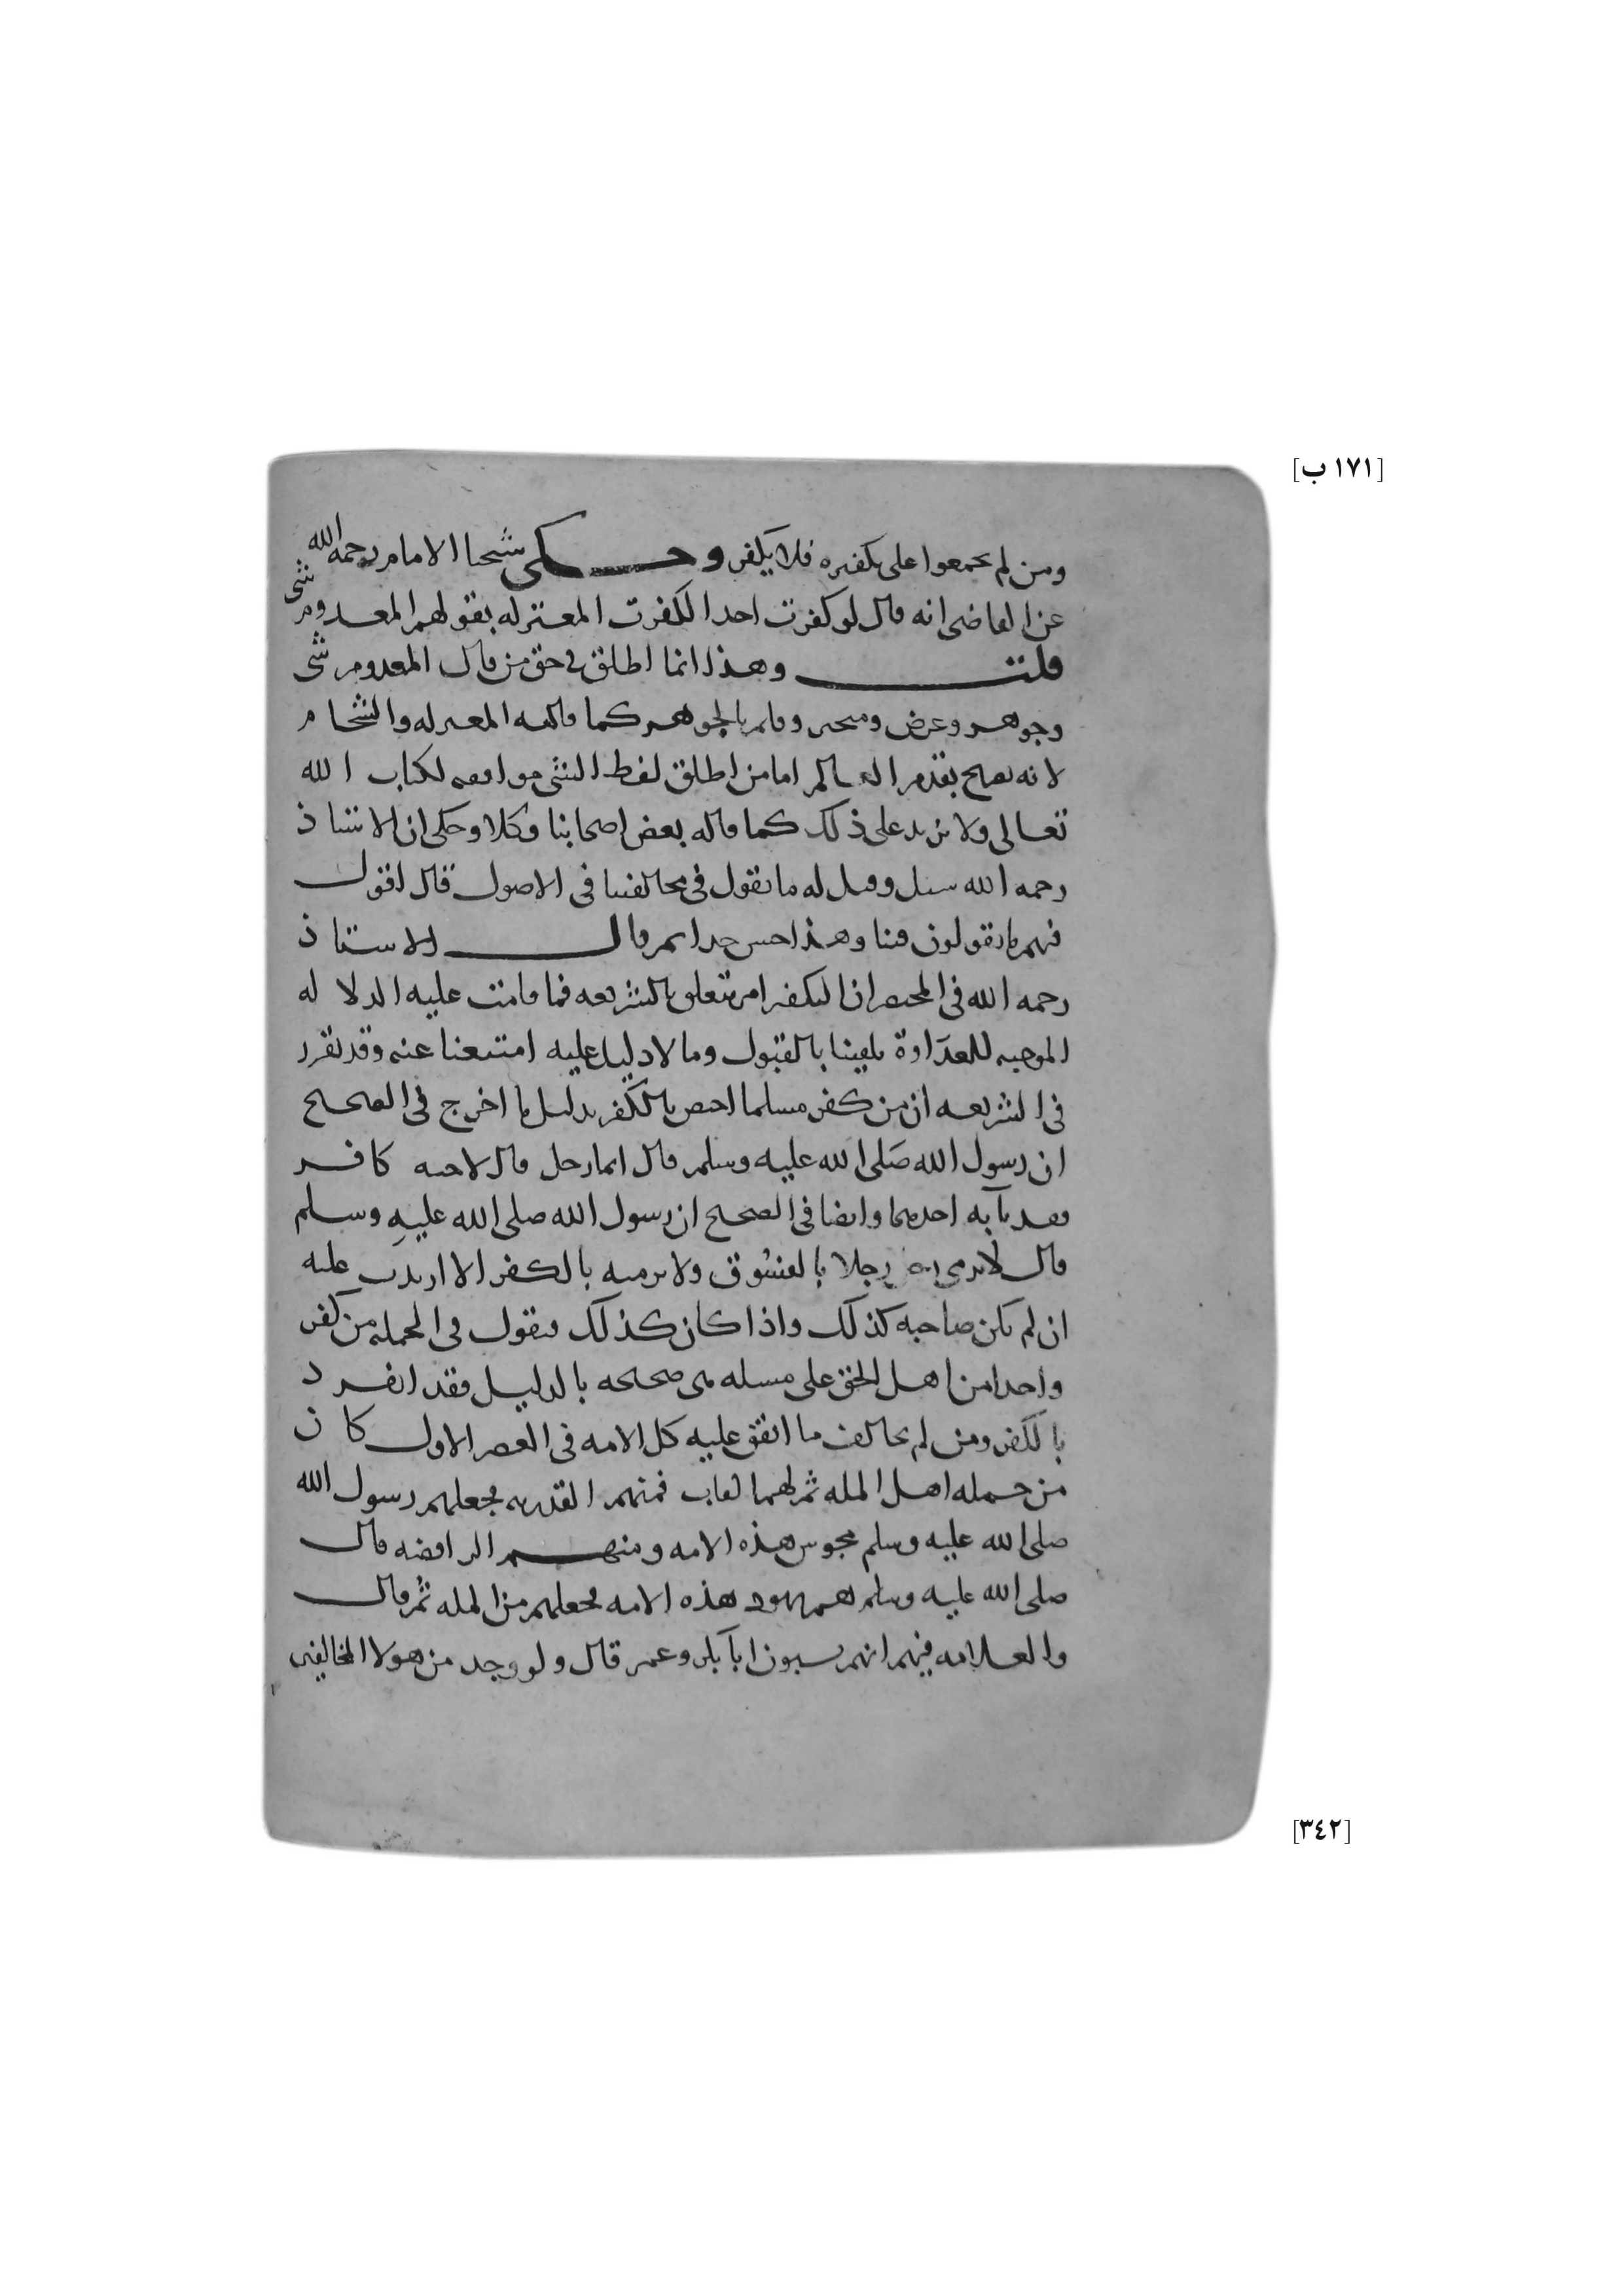 [١٧١ ب]
ومن لم يجمعوا على تكفيره فلا يكفر وحكى شيخنا الامام رحمه الله
عن القاضي انه قال لو كفرت احدا لكفرت المعتزله بقولهم المعدوم شي
قلت وهذا انما اطلق في حق من قال المعدوم شي
وجوهر وعرض ومتحيز وقايم بالجوهر كما قالته المعتزله والشحام
لانه تصريح بقدم العالم اما من اطلق لفظ الشي موافقه لكتاب الله
تعالى ولا يزيد على ذلك كما قاله بعض اصحابنا فكلا وحكى ان الاستاذ
رحمه الله سيل وقيل له ما تقول في مخالفينا في الاصول قال اقول
فيهم ما يقولون فينا وهذا حسن جدا ثم قال الاستاذ
رحمه الله في المختصر ان التكفير امر يتعلق بالشريعه فما قامت عليه الدلاله
الموجبه للعداوة تلقينا بالقبول وما لا دليل عليه امتنعنا عنه وقد تقرر
في الشريعه ان من كفر مسلما اختص بالكفر بدليل ما اخرج في الصحيح
ان رسول الله صلى الله عليه وسلم قال ايما رجل قال لاخيه كافر
فقد باء به احدهما وايضا في الصحيح ان رسول الله صلى الله عليه وسلم
قال لا يرمي رجل رجلا بالفسوق ولا يرميه بالكفر الا ارتدت عليه
ان لم يكن صاحبه كذلك واذا كان كذلك فنقول في الجمله من كفر
واحدا من اهل الحق على مسله هي صحيحه بالدليل فقد انفرد
بالكفر ومن لم يخالف ما اتفق عليه كل الامه في العصر الاول كان
من جمله اهل المله ثم لهم القاب فمنهم القدريه فجعلهم رسول الله
صلى الله عليه وسلم مجوس هذه الامه ومنهم الرافضه قال
صلى الله عليه وسلم هم يهود هذه الامه فجعلهم من المله ثم قال
والعلامه فيهم انهم يسبون ابا بكر وعمر قال ولو وجد من هولا المخالفين
[٣٤٢]